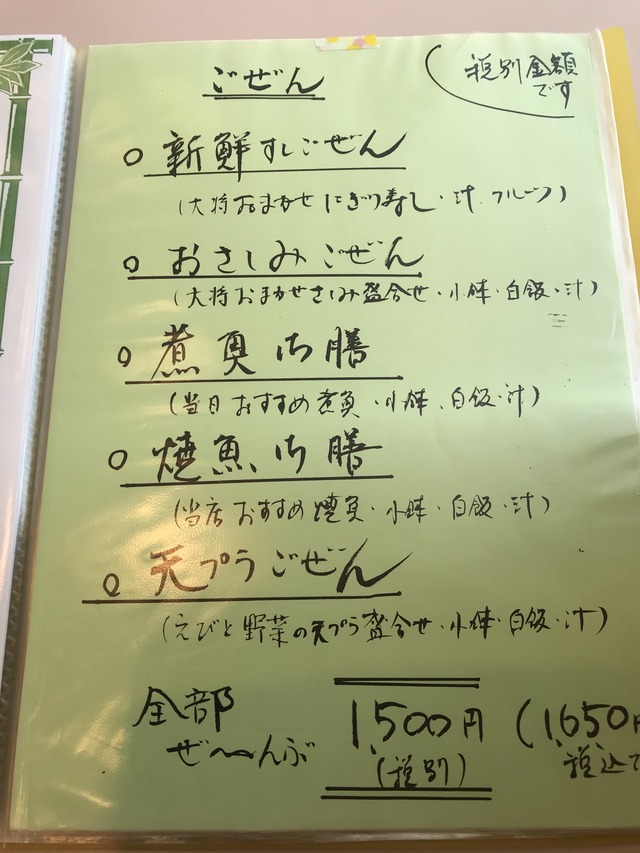 ごぜん
税別金額
です
○ 新鮮すしごぜん
(大将おまかせにぎり寿し・汁、フルーツ)
○ おさしみごぜん
(大将おまかせさしみ盛合せ・小鉢・白飯・汁)
○ 煮魚御膳
(当日おすすめ煮魚・小鉢、白飯・汁)
○ 焼魚御膳
(当店おすすめ焼魚・小鉢・白飯・汁)
○ 天プラごぜん
(えびと野菜の天プラ盛合せ・小鉢・白飯・汁)
全部 1,500円 (1,650円
ぜ〜んぶ (税別) 税込で